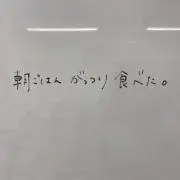 朝ごはん がっつり 食べた。